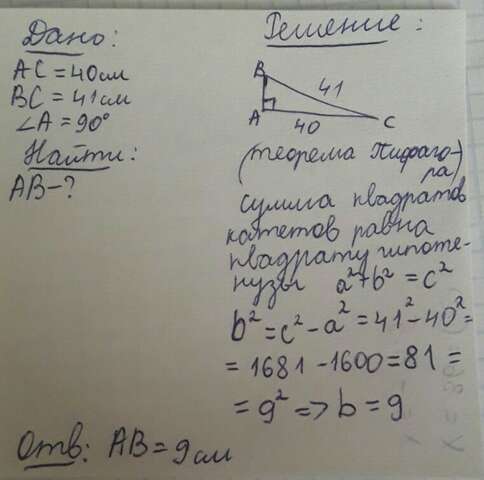 Дано:
AC = 40 см
BC = 41 см
∠A = 90°
Найти:
AB – ?
Решение:
B
41
A
40
C
(теорема Пифаго-
ра)
сумма квадратов
катетов равна
квадрату гипоте-
нузы a² + b² = c²
b² = c² – a² = 41² – 40² =
= 1681 – 1600 = 81 =
= 9² => b = 9
Отв: AB = 9 см